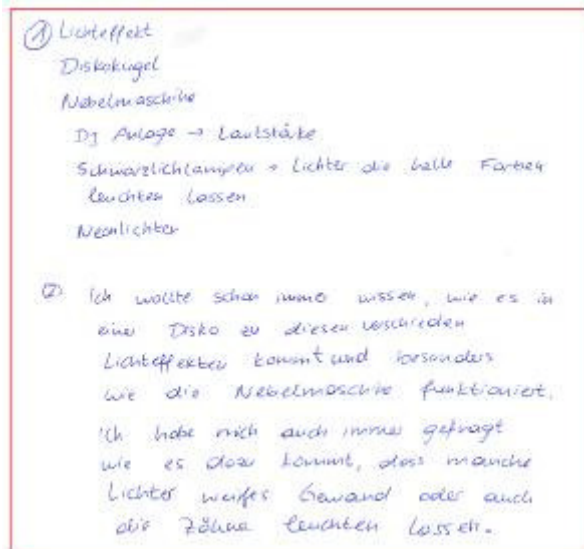 ① Lichteffekt
Diskokugel
Nebelmaschine
DJ Anlage → Lautstärke
Schwarzlichtlampen → Lichter die helle Farben
leuchten lassen
Neonlichter
② Ich wollte schon immer wissen, wie es in
einer Disko zu diesen verschieden
Lichteffekten kommt und besonders
wie die Nebelmaschine funktioniert.
Ich habe mich auch immer gefragt
wie es dazu kommt, dass manche
Lichter weißes Gewand oder auch
die Zähne leuchten lassen.